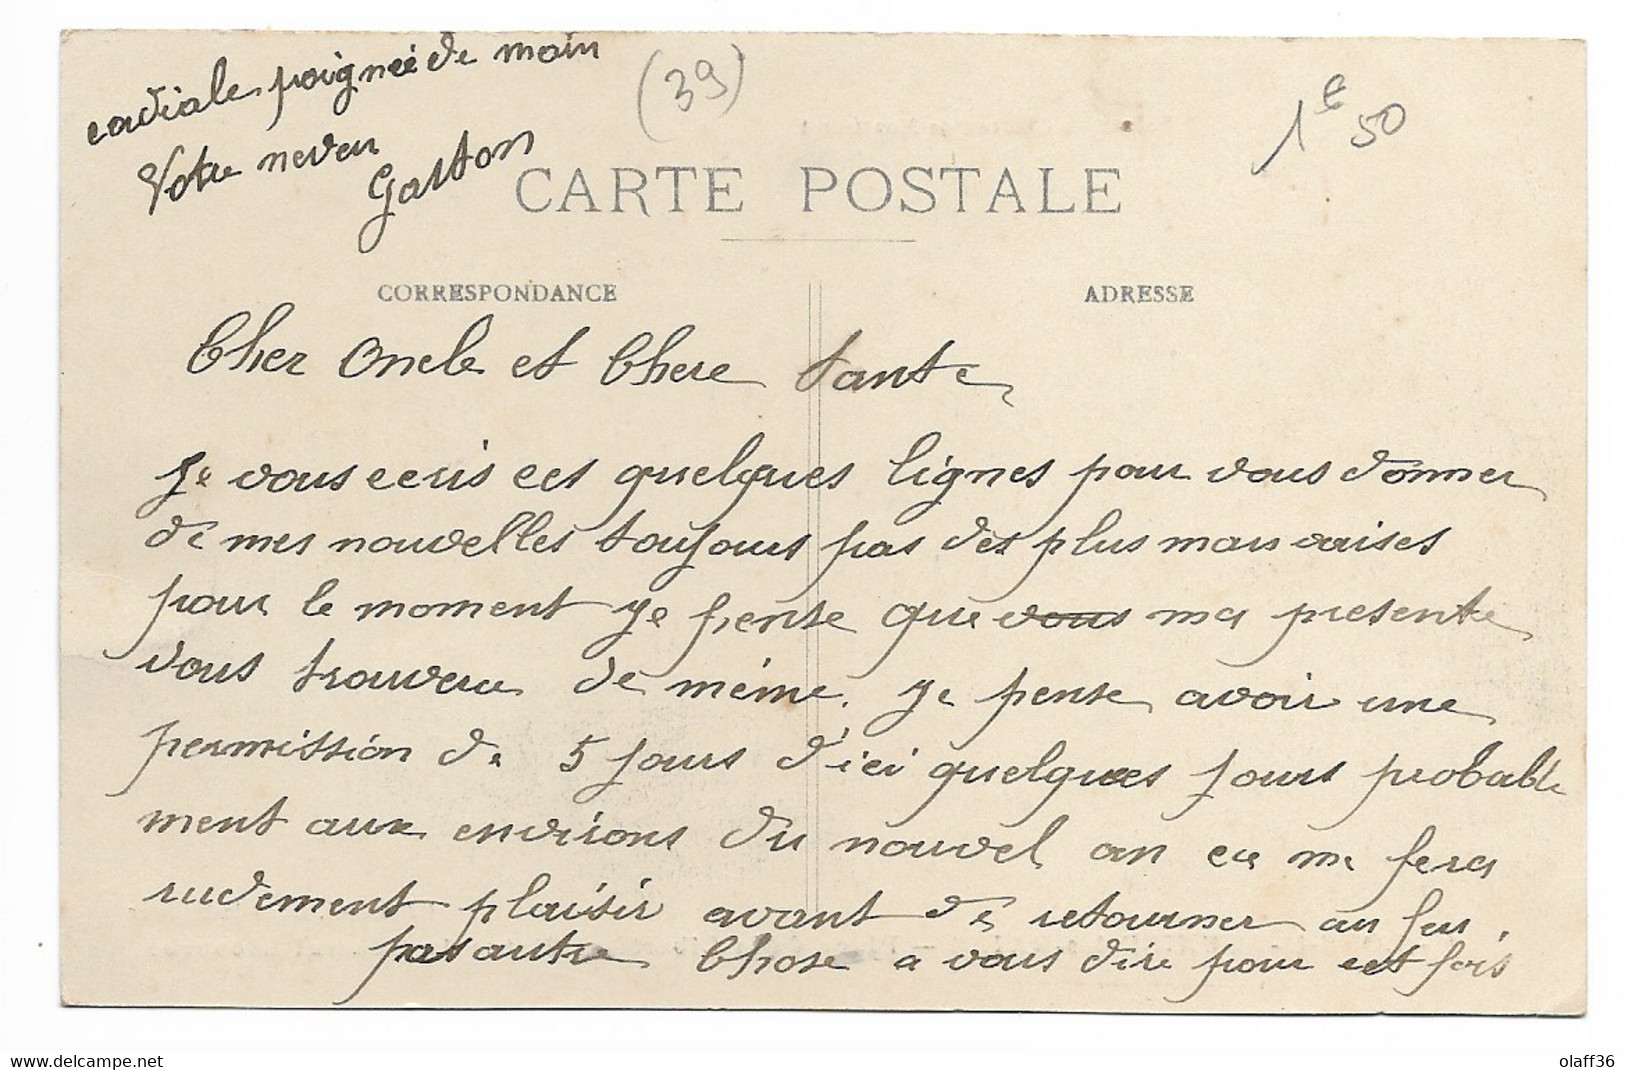 cordiale poignée de main
Votre neveu
Gaston
(39)
1e50
CARTE POSTALE
CORRESPONDANCE
ADRESSE
Cher Oncle et Chere Tante
Je vous ecris ces quelques lignes pour vous donner
de mes nouvelles toujours pas des plus mauvaises
pour le moment Je pense que vous ma presente
vous trouvera de méme. Je pense avoir une
permission de 5 jours d'ici quelques jours probable
ment aux environs du nouvel an ca me fera
rudement plaisir avant de retourner au feu.
pas autre Chose a vous dire pour cet fois
https://www.delcampe.net
olaff36